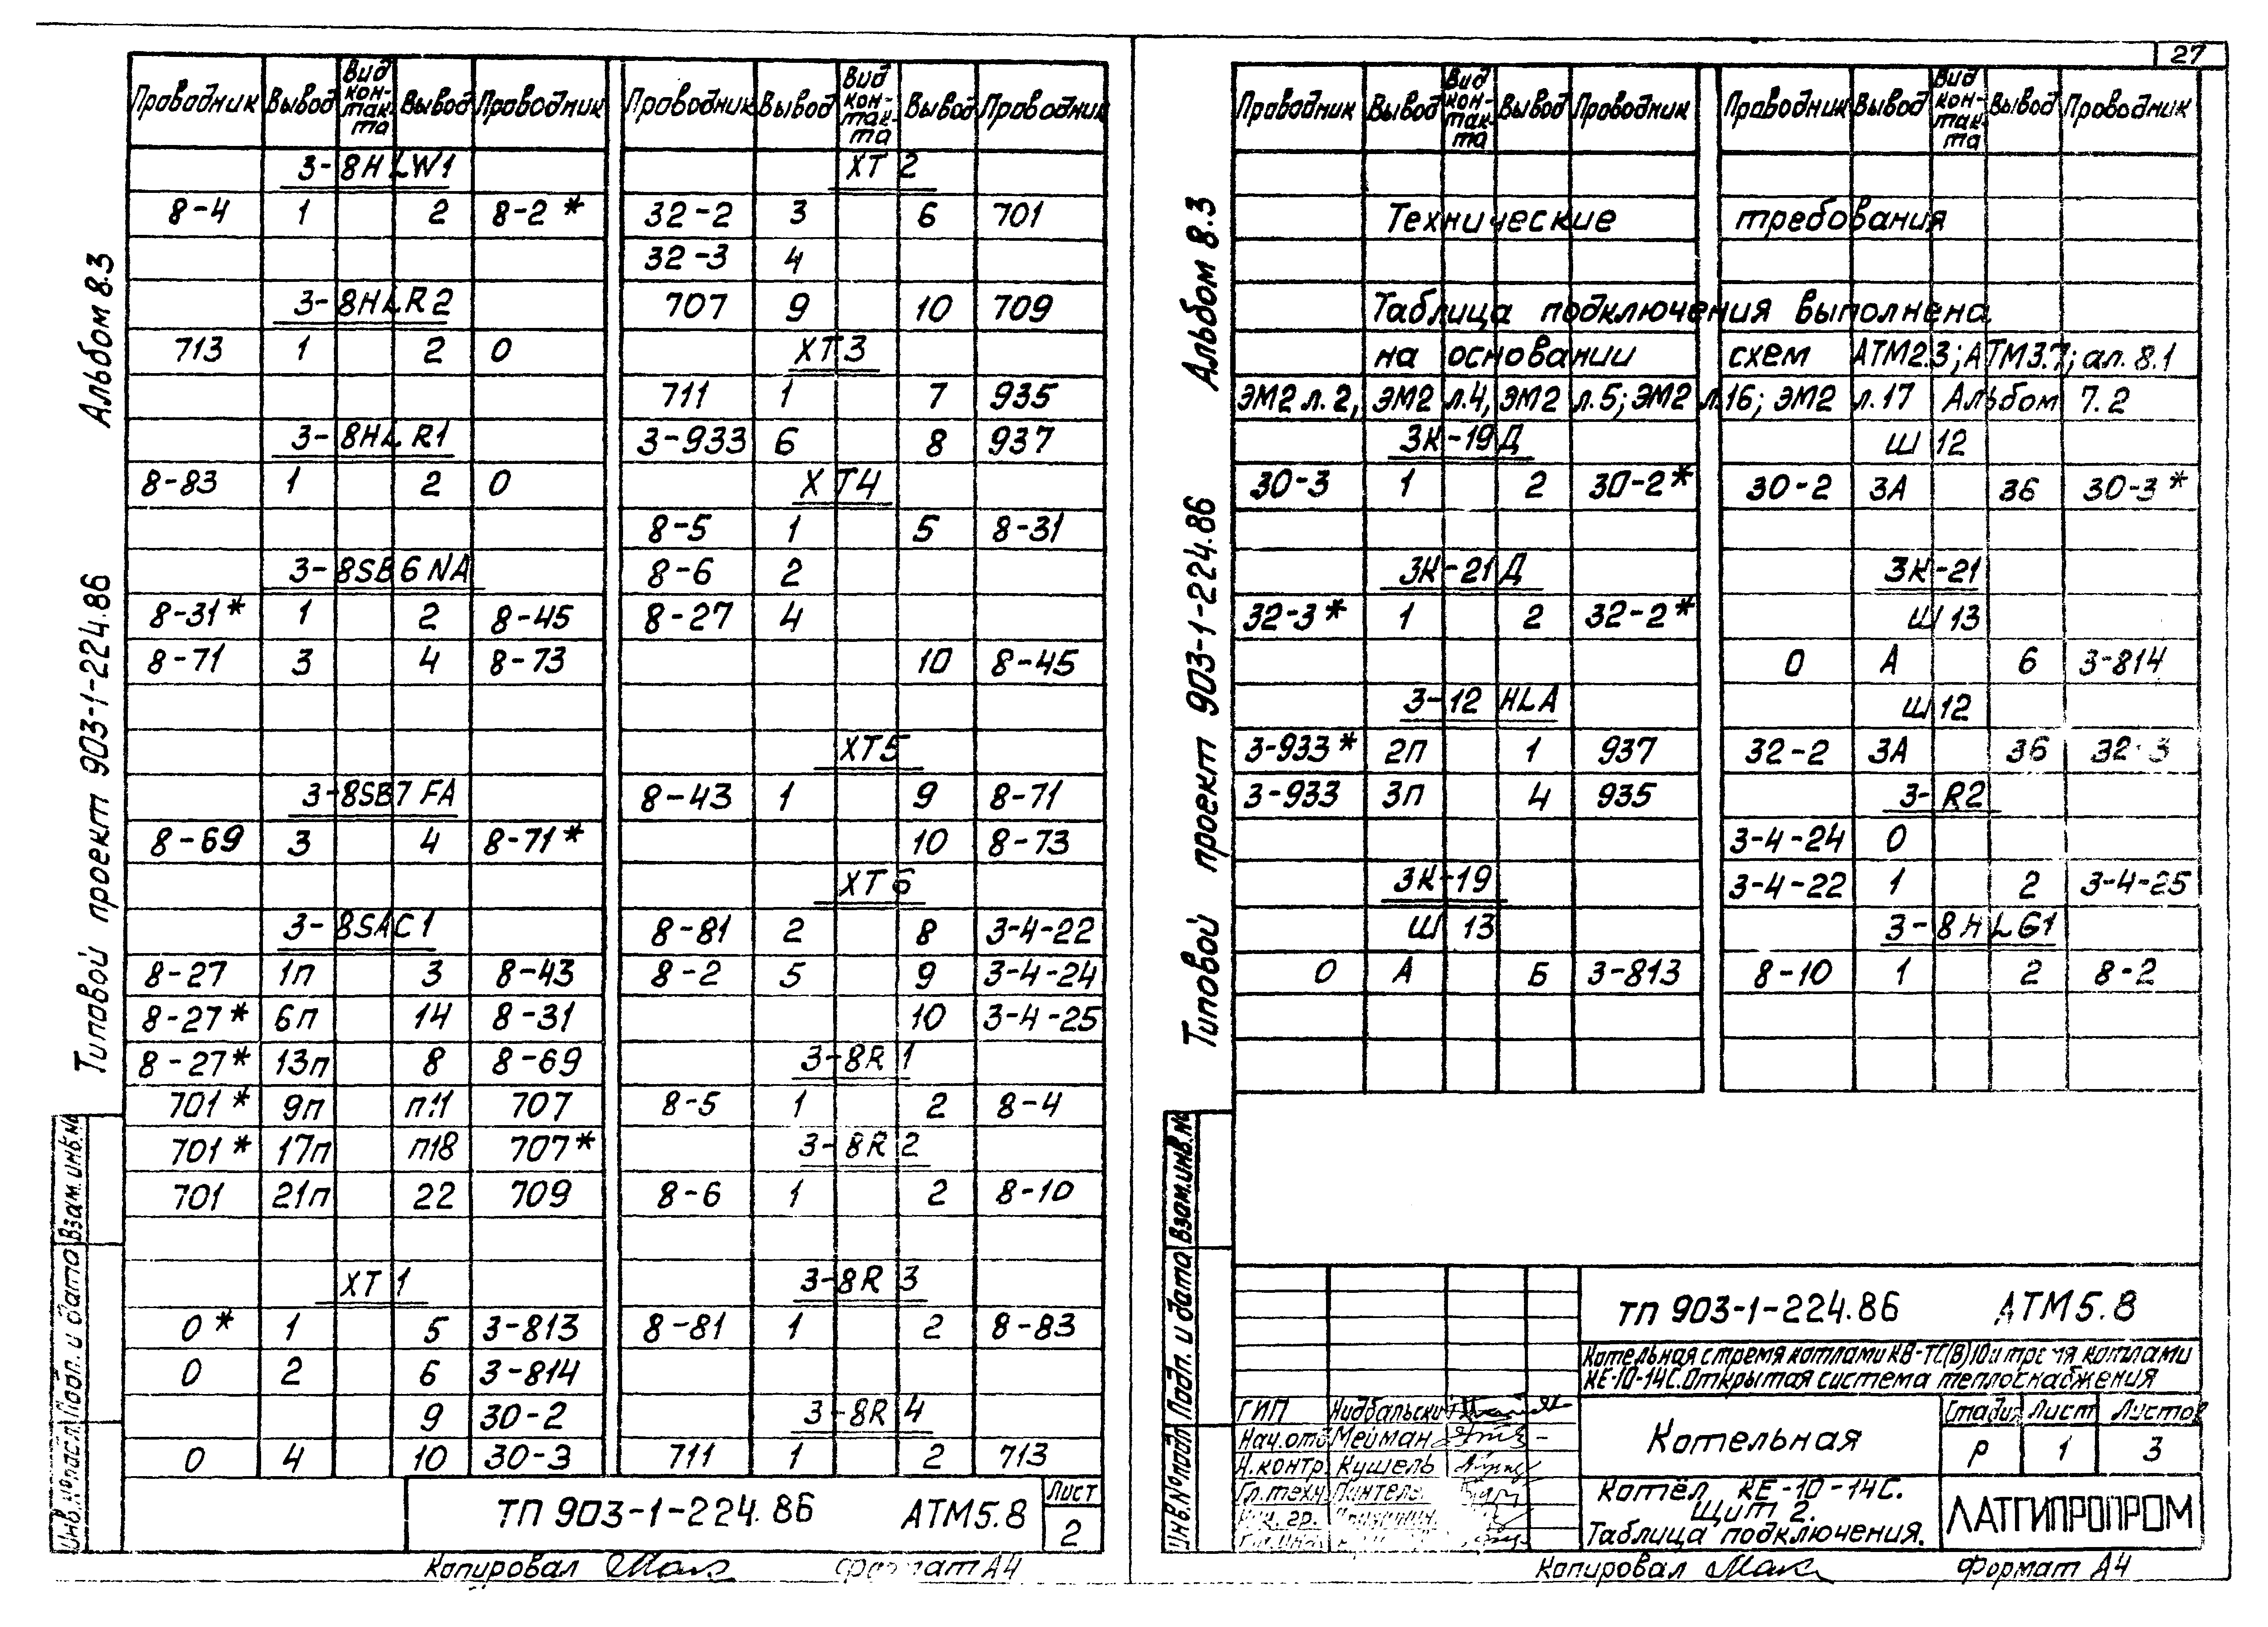 27
Альбом 8.3
Типовой проект 903-1-224.86
Проводник Вывод Вид контакта Вывод Проводник
3-8HLW1
8-4 1 2 8-2*
3-8HLR2
713 1 2 0
3-8HLR1
8-83 1 2 0
3-8SB6NA
8-31* 1 2 8-45
8-71 3 4 8-73
3-8SB7FA
8-69 3 4 8-71*
3-8SAC1
8-27 1п 3 8-43
8-27* 6п 14 8-31
8-27* 13п 8 8-69
701* 9п п11 707
701* 17п п18 707*
701 21п 22 709
XT1
0* 1 5 3-813
0 2 6 3-814
9 30-2
0 4 10 30-3
Проводник Вывод Вид кон-так-та Вывод Проводник
XT2
32-2 3 6 701
32-3 4
707 9 10 709
XT3
711 1 7 935
3-933 6 8 937
XT4
8-5 1 5 8-31
8-6 2
8-27 4
10 8-45
XT5
8-43 1 9 8-71
10 8-73
XT6
8-81 2 8 3-4-22
8-2 5 9 3-4-24
10 3-4-25
3-8R1
8-5 1 2 8-4
3-8R2
8-6 1 2 8-10
3-8R3
8-81 1 2 8-83
3-8R4
711 1 2 713
Взам.инв.№
Подп. и дата
Инв.№подл.
ТП 903-1-224.86 АТМ5.8
Лист
2
Копировал
Формат А4
Альбом 8.3
Типовой проект 903-1-224.86
Проводник Вывод Вид кон-так-та Вывод Проводник
Проводник Вывод Вид кон-так-та Вывод Проводник
Технические требования
Таблица подключения выполнена
на основании схем АТМ2.3; АТМ3.7; ал. 8.1
ЭМ2 л.2, ЭМ2 л.4, ЭМ2 л.5; ЭМ2 л.16; ЭМ2 л.17 Альбом 7.2
3К-19Д
30-3 1 2 30-2*
3К-21Д
32-3* 1 2 32-2*
3-12HLA
3-933* 2п 1 937
3-933 3п 4 935
3К-19
Ш13
0 А Б 3-813
Ш12
30-2 3А 3б 30-3*
3К-21
Ш13
0 А б 3-814
Ш12
32-2 3А 3б 32-3
3-R2
3-4-24 0
3-4-22 1 2 3-4-25
3-8HLG1
8-10 1 2 8-2
Взам.инв.№
Подп. и дата
Инв.№подл
ТП 903-1-224.86 АТМ5.8
Котельная с тремя котлами КВ-ТС(В)10 и тремя котлами
КЕ-10-14С. Открытая система теплоснабжения
ГИП Нидбальски
Нач.отд Мейман
Н.контр Кушель
Гл.техн
Котельная
Стадия Лист Листов
Р 1 3
Котёл КЕ-10-14С.
Щит 2.
Таблица подключения.
ЛАТГИПРОПРОМ
Копировал
Формат А4